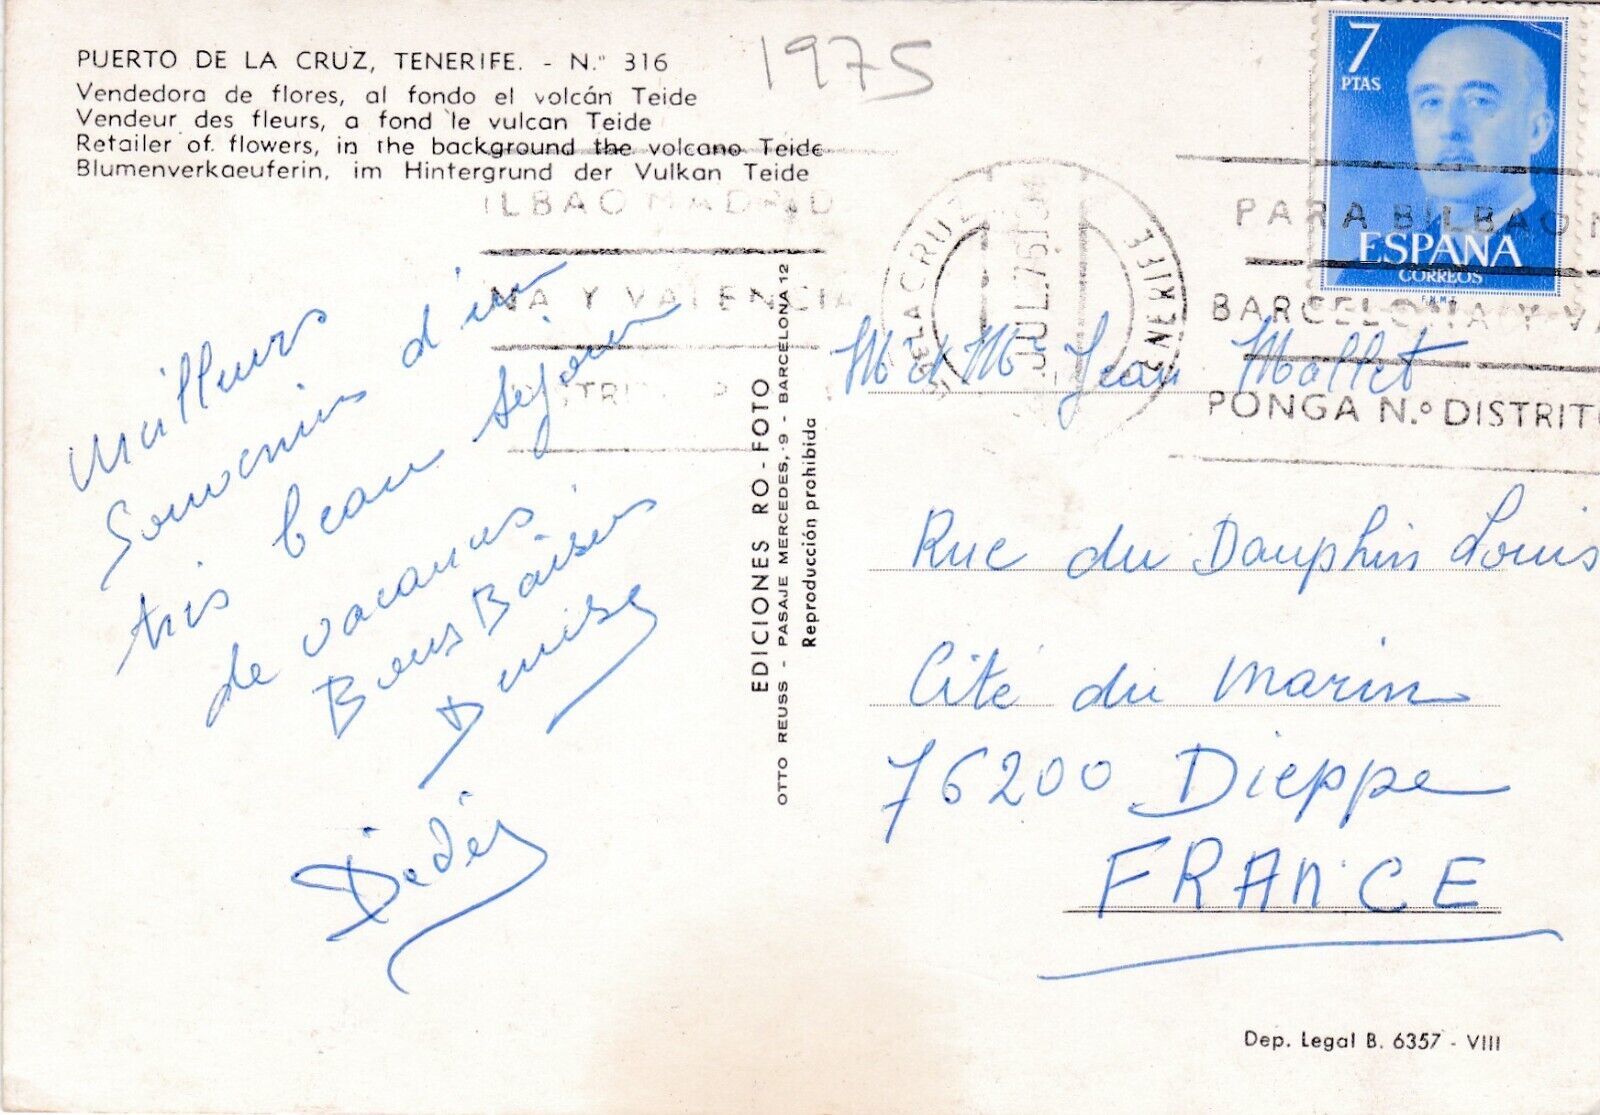 PUERTO DE LA CRUZ, TENERIFE. - N.º 316
Vendedora de flores, al fondo el volcán Teide
Vendeur des fleurs, a fond le vulcan Teide
Retailer of. flowers, in the background the volcano Teide
Blumenverkaeuferin, im Hintergrund der Vulkan Teide
1975
7
PTAS
ESPAÑA
CORREOS
F.N.M.T.
ILBAO MADRID
NA Y VALENCIA
DE LA CRUZ
JUL.76
TENERIFE
PARA BILBAO M
BARCELONA Y VA
PONGA N.º DISTRITO
Meilleurs
souvenirs d'un
très beau séjour
de vacances
Bons Baisers
Denise
Dédée
EDICIONES RO - FOTO
OTTO REUSS - PASAJE MERCEDES, 9 - BARCELONA 12
Reproducción prohibida
Mr et Me Jean Mallet
Rue du Dauphin Louis
Cité du Marin
76200 Dieppe
FRANCE
Dep. Legal B. 6357 - VIII